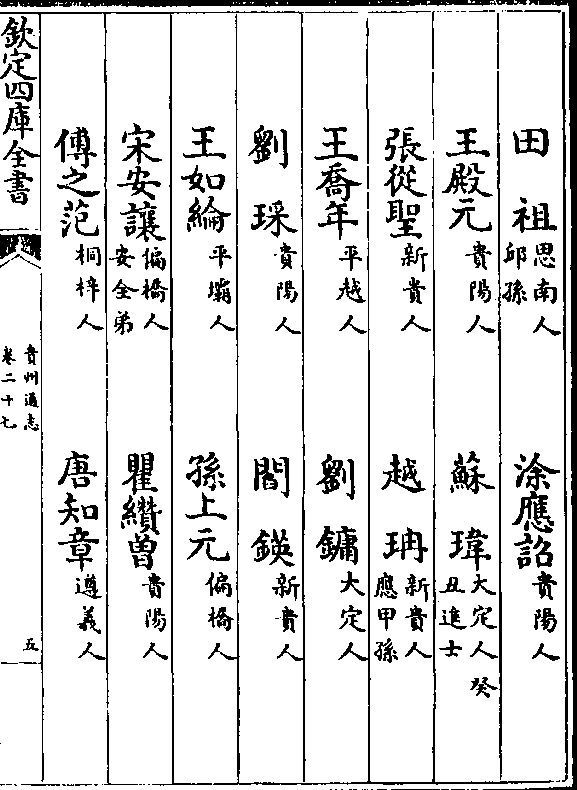 田祖思南人邱孫　涂應詔貴陽人
王殿元貴陽人　蘇瑋大定人癸丑進士
張從聖新貴人　越珃新貴人應甲孫
王喬年平越人　劉鏞大定人
劉琛貴陽人　閻鍈新貴人
王如綸平壩人　孫上元偏橋人
宋安讓偏橋人安全弟　瞿纘曾貴陽人
傅之范桐梓人　唐知章遵義人
欽定四庫全書　貴州通志卷二十七　五